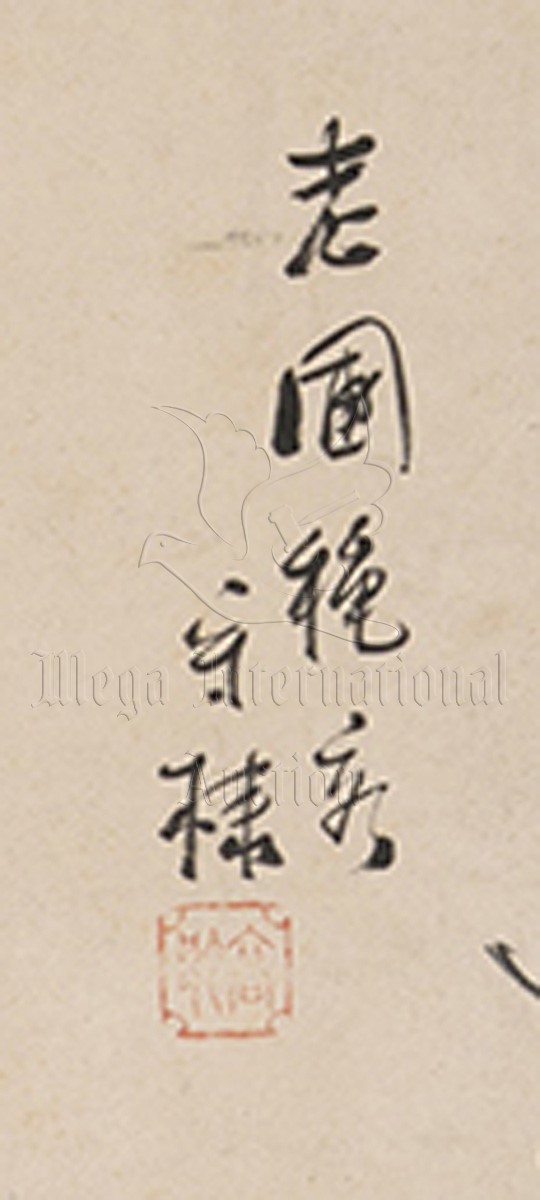 老圃穐容
守棣
Mega International
Auction